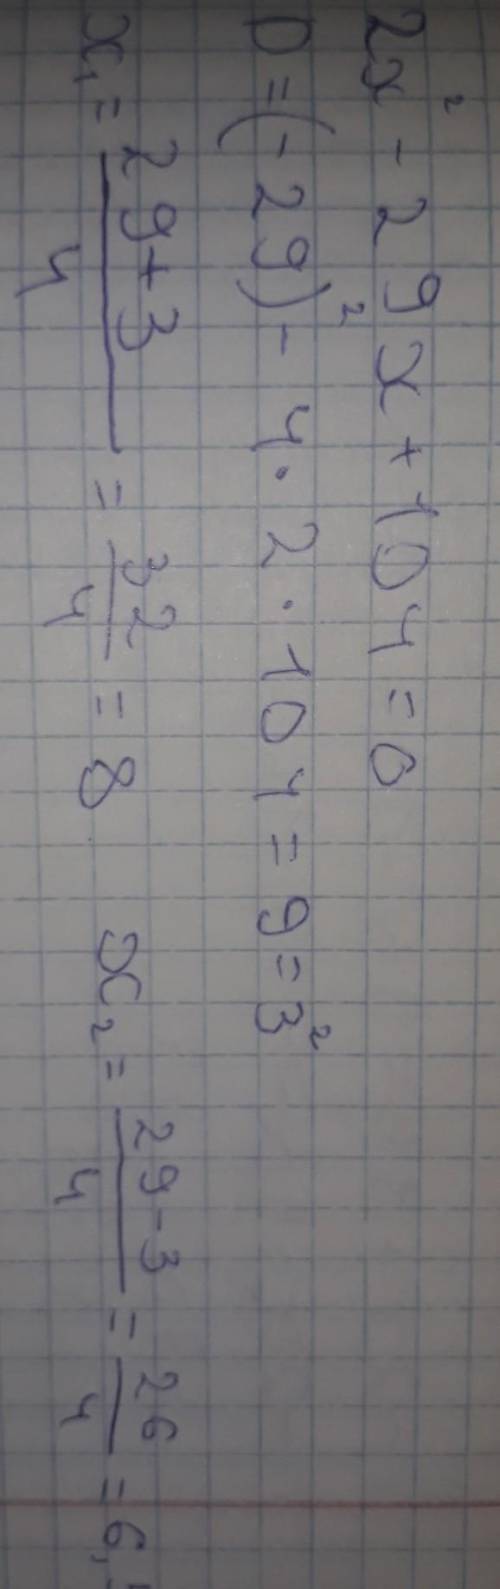 2x² - 29x + 104 = 0
D = (-29)² - 4 · 2 · 104 = 9 = 3²
x₁ = (29+3)/4 = 32/4 = 8 x₂ = (29-3)/4 = 26/4 = 6,